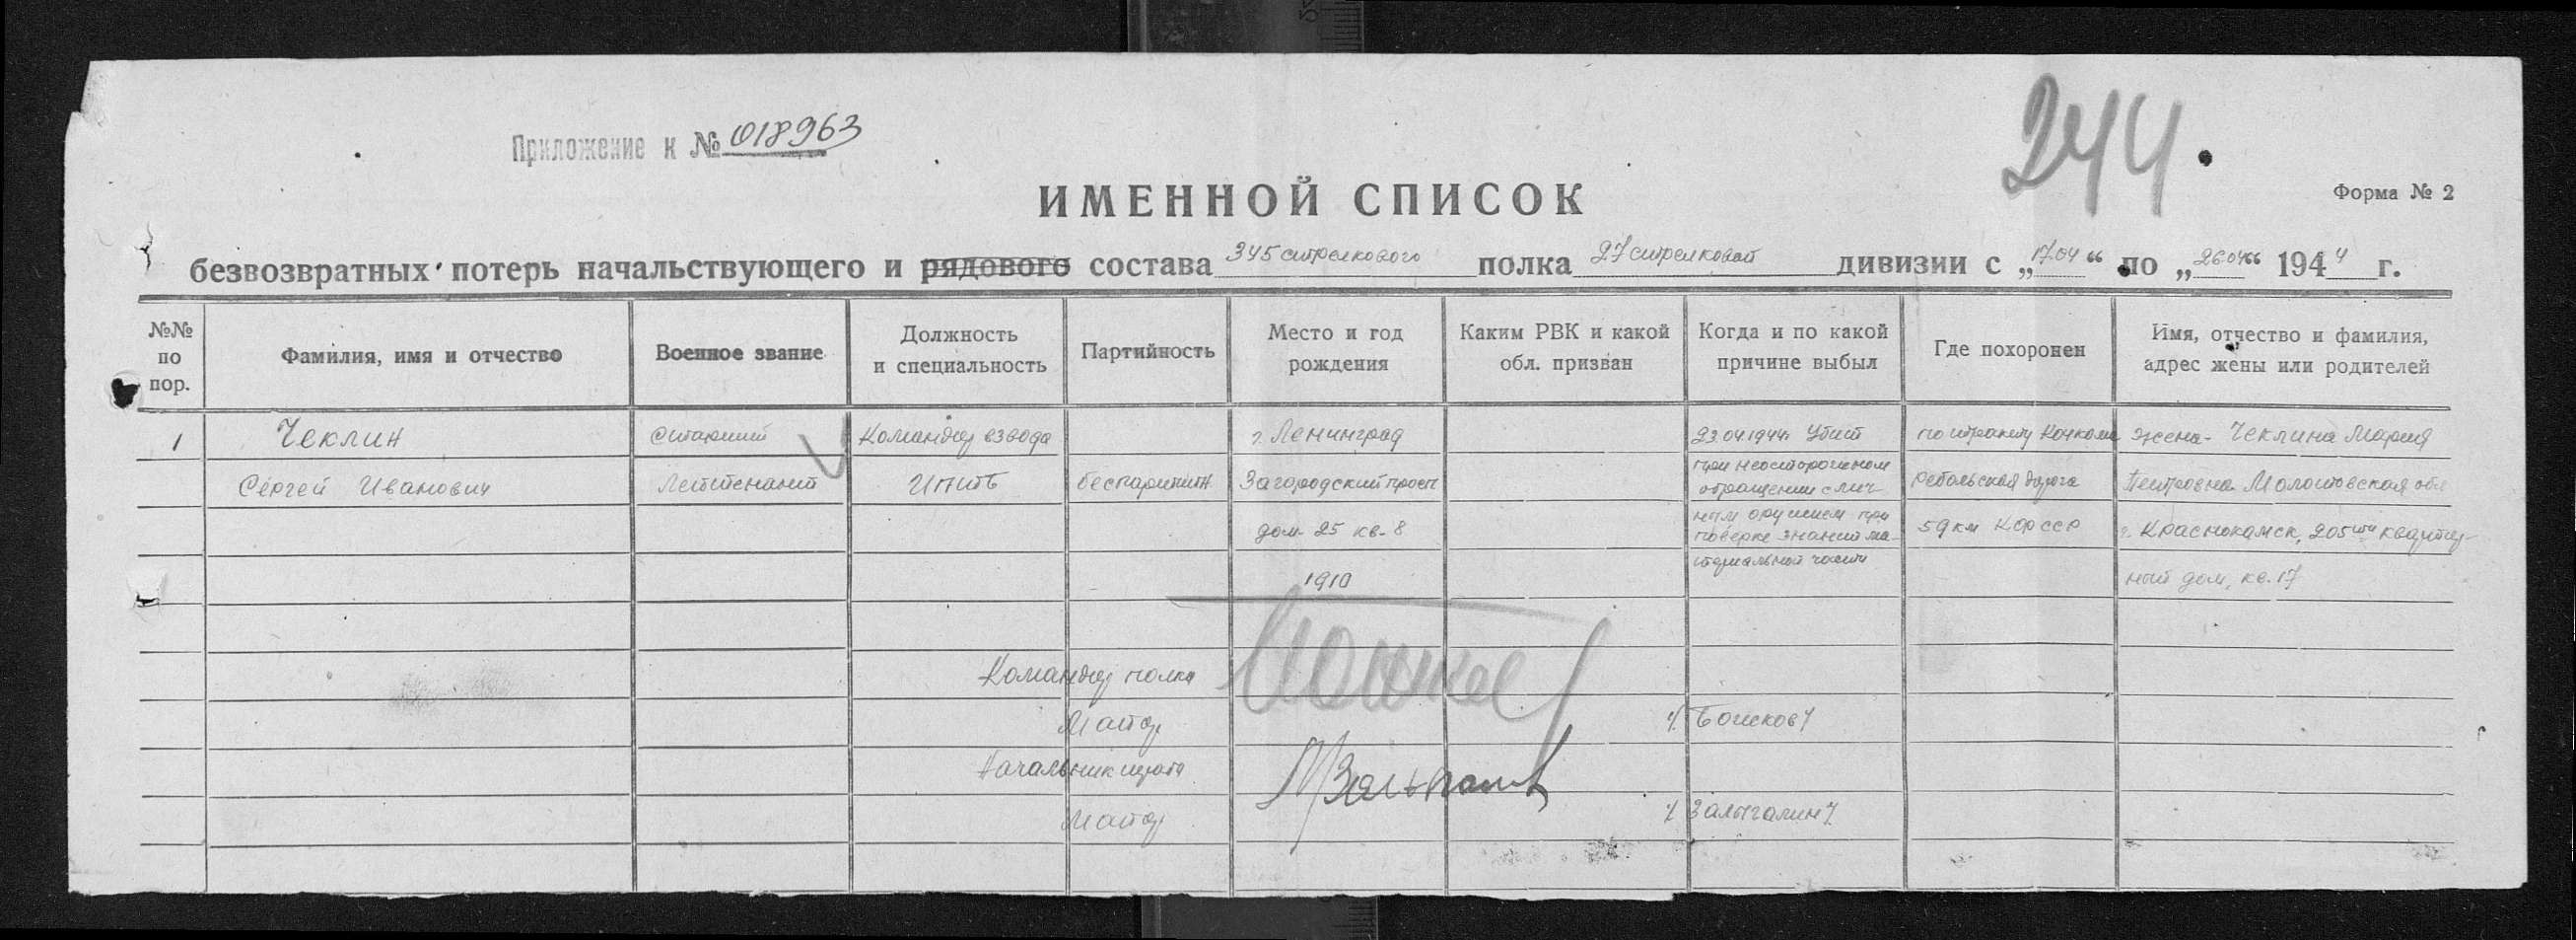 Приложение к № 018963
244.
ИМЕННОЙ СПИСОК
Форма № 2
безвозвратных потерь начальствующего и рядового состава 345 стрелкового полка 27 стрелковой дивизии с „17.04“ по „26.04“ 1944 г.
№№ по пор.
Фамилия, имя и отчество
Военное звание
Должность и специальность
Партийность
Место и год рождения
Каким РВК и какой обл. призван
Когда и по какой причине выбыл
Где похоронен
Имя, отчество и фамилия, адрес жены или родителей
1
Чеклин
Сергей Иванович
Старший
Лейтенант
Командир взвода
беспартийн
г. Ленинград
Загородский просп
дом- 25 кв- 8
1910
23.04.1944г. Убит
при неосторожном
обращении с лич-
ным оружием при
поверке знаний ма-
териальной части
по тракту Кочкома
Ребольская дорога
59 км КФССР
жена- Чеклина Мария
Петровна Молотовская обл
г. Краснокамск, 205ти квартир-
ный дом, кв. 17
Командир полка
Майор
/Божков/
Начальник штаба
Майор